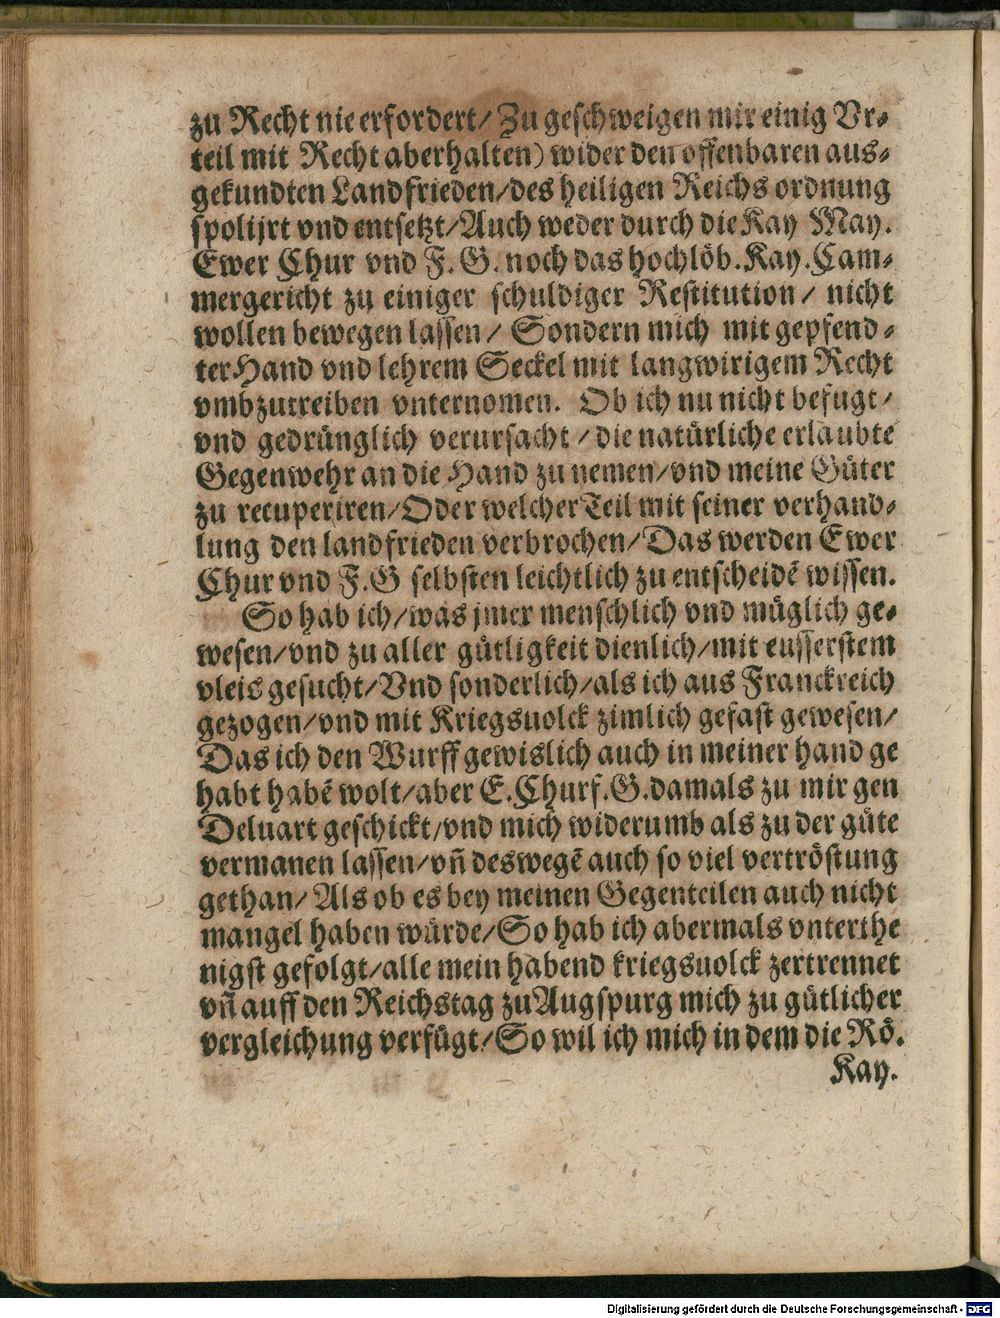 zu Recht nie erfordert/ Zu geschweigen mir einig Vr⸗
teil mit Recht aberhalten) wider den offenbaren aus⸗
gekundten Landfrieden/des heiligen Reichs ordnung
spolijrt vnd entsetzt/Auch weder durch die Kay May.
Ewer Chur vnd F. G. noch das hochlöb. Kay. Cam⸗
mergericht zu einiger schuldiger Restitution/ nicht
wollen bewegen lassen/ Sondern mich mit gepfend⸗
ter Hand vnd lehrem Seckel mit langwirigem Recht
vmbzutreiben vnternomen. Ob ich nu nicht befugt/
vnd gedrünglich verursacht/die natürliche erlaubte
Gegenwehr an die Hand zu nemen/vnd meine Güter
zu recuperiren/Oder welcher Teil mit seiner verhand⸗
lung den landfrieden verbrochen/Das werden Ewer
Chur vnd F.G selbsten leichtlich zu entscheidē wissen.
So hab ich/was jmer menschlich vnd müglich ge⸗
wesen/vnd zu aller gütligkeit dienlich/mit eusserstem
vleis gesucht/Vnd sonderlich/als ich aus Franckreich
gezogen/vnd mit Kriegsuolck zimlich gefast gewesen/
Das ich den Wurff gewislich auch in meiner hand ge
habt habē wolt/aber E.Churf.G.damals zu mir gen
Deluart geschickt/vnd mich widerumb als zu der güte
vermanen lassen/vn̄ deswegē auch so viel vertröstung
gethan/Als ob es bey meinen Gegenteilen auch nicht
mangel haben würde/So hab ich abermals vnterthe
nigst gefolgt/alle mein habend kriegsuolck zertrennet
vn̄ auff den Reichstag zu Augspurg mich zu gütlicher
vergleichung verfügt/So wil ich mich in dem die Rö.
Kay.
Digitalisierung gefördert durch die Deutsche Forschungsgemeinschaft - DFG